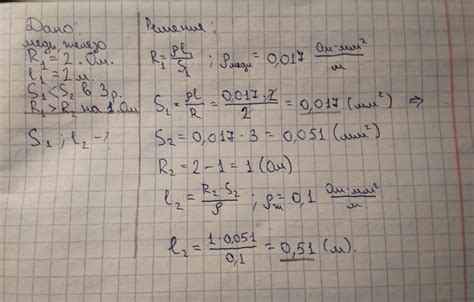 Дано:
медь, железо
R₁ = 2 Ом.
l₁ = 2 м
S₁ < S₂ в 3 р.
R₁ > R₂ на 1 Ом
S₁ ; l₂ - ?
Решения:
R₁ = ρl₁/S₁ ; ρмеди = 0,017 Ом·мм²/м
S₁ = ρl/R = 0,017·2/2 = 0,017 (мм²) ⇒
S₂ = 0,017 · 3 = 0,051 (мм²)
R₂ = 2 - 1 = 1 (Ом)
l₂ = R₂·S₂/ρ ; ρж = 0,1 Ом·мм²/м
l₂ = 1·0,051/0,1 = 0,51 (м).